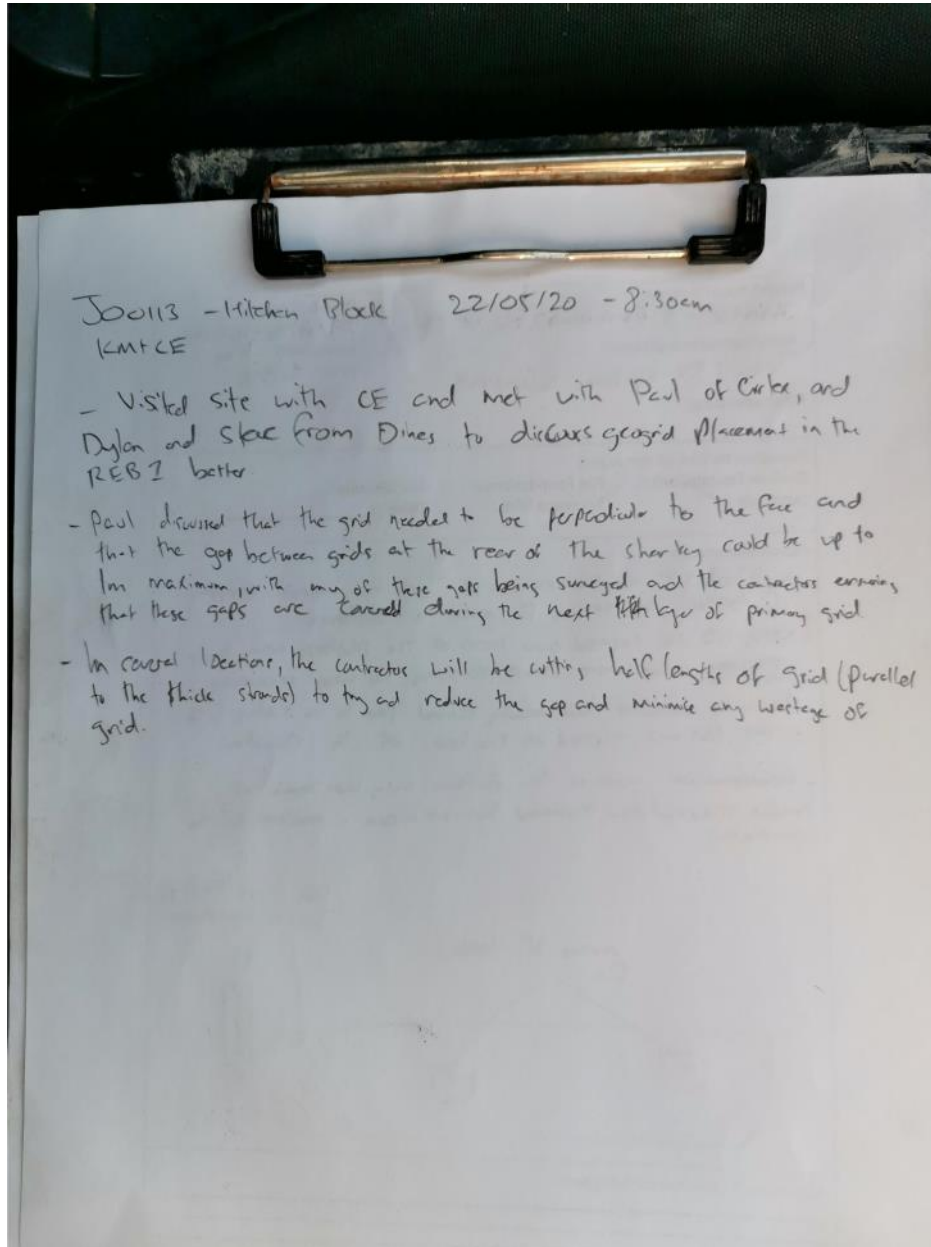 J00113 - Hitchen Block 22/05/20 - 8:30am
KM+CE
- Visited site with CE and met with Paul of Cirtex, and
Dylan and Steve from Dines to discuss geogrid placement in the
REB 1 batter
- Paul discussed that the grid needed to be perpedicular to the face and
that the gap between grids at the rear of the shear key could be up to
1m maximum, with any of these gaps being surveyed and the contractors ensuring
that these gaps are covered during the next layer of primary grid
- In several locations, the contractors will be cutting half lengths of grid (parallel
to the thick strands) to try and reduce the gap and minimise any wastage of
grid.